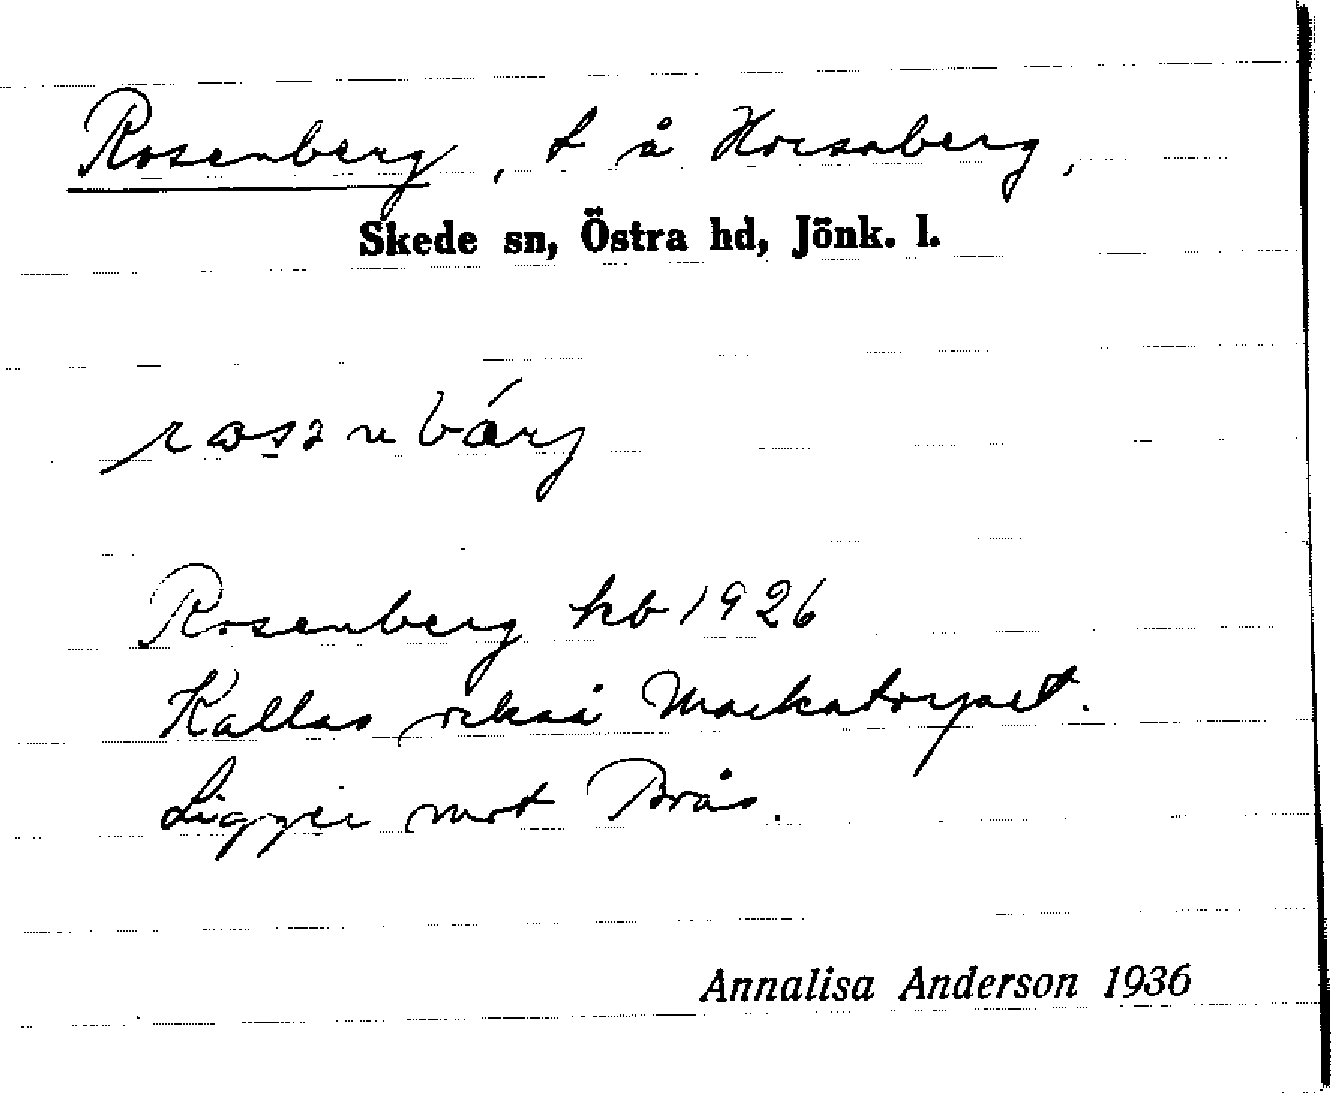 Rosenberg, t å Horsaberg,
Skede sn, Östra hd, Jönk. l.
Rosenberg kb 1926
Kallas också Mackatorpet.
Ligger mot Brås.
Annalisa Anderson 1936